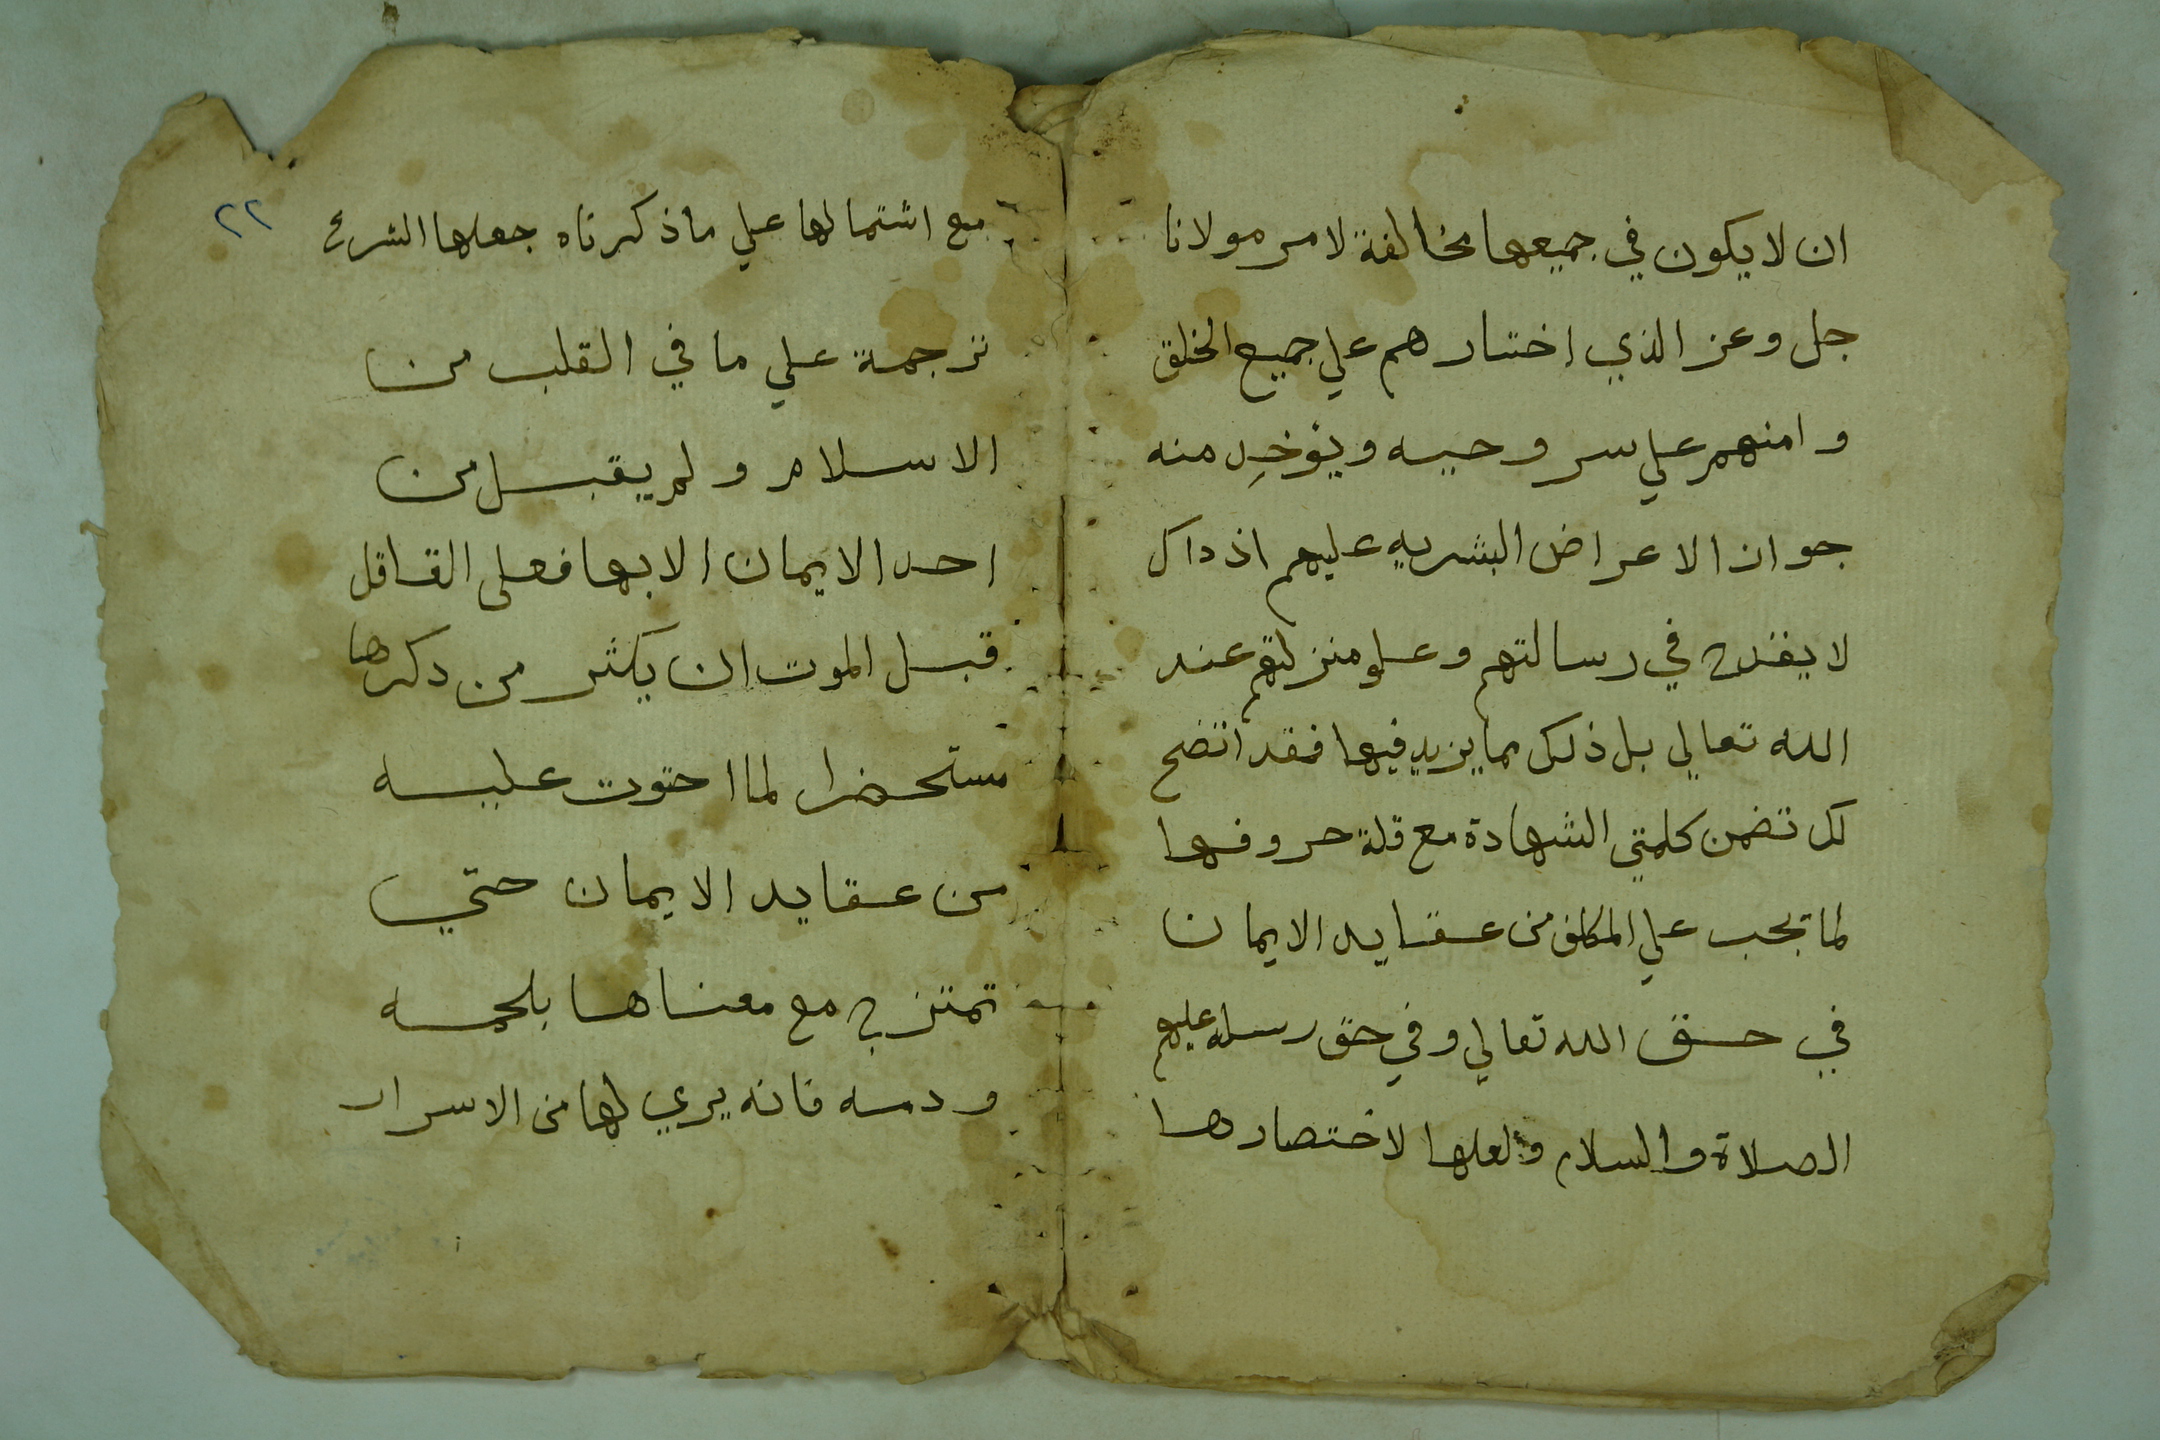 ان لا يكون في جميعها مخالفة لامر مولانا
جل وعز الذي اختارهم علي جميع الخلق
وامنهم علي سر وحيه ويؤخد منه
جواز الاعراض البشريه عليهم اذ داك
لا يقدح في رسالتهم وعلو منزلتهم عند
الله تعالي بل ذلك مما يزيد فيها فقد اتضح
لك تضمن كلمتي الشهادة مع قلة حروفها
لما تجب علي المكلف من عقايد الايمان
في حق الله تعالي وفي حق رسله عليهم
الصلاة والسلام ولعلها لاختصارها
٢٢
مع اشتمالها علي ما ذكرناه جعلها الشرع
ترجمة علي ما في القلب من
الاسلام ولم يقبل من
احد الايمان الا بها فعلى العاقل
قبل الموت ان يكثر من دكرها
مستحضرا لما احتوت عليه
من عقايد الايمان حتي
تمتزج مع معناها بلحمه
ودمه فانه يري لها من الاسرار